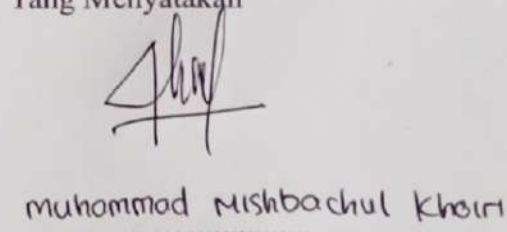 Yang Menyatakan
Muhammad Mishbachul Khoiri